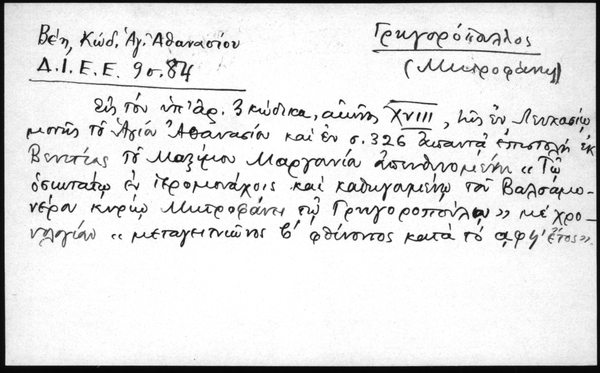 Βέη, Κώδ. Ἁγ. Ἀθανασίου
Δ.Ι.Ε.Ε. 9σ.84
Γρηγορόπουλλος
(Μητροφάνης)
Εἰς τόν ὑπ' ἀρ. 3 κώδικα, αἰῶνος XVIII, τῆς ἐν Λευκασίῳ
μονῆς τοῦ Ἁγίου Ἀθανασίου καί ἐν σ. 326 ἀπαντᾷ ἐπιστολή ἐκ
Βενετίας τοῦ Μαξίμου Μαργουνίου ἀπευθυνομένη «Τῷ
ὁσιωτάτῳ ἐν ἱερομονάχοις καί καθηγουμένῳ τοῦ Βαλσαμο-
νέρου κυρίῳ Μητροφάνει τῷ Γρηγοροπούλῳ» μέ χρο-
νολογίαν «μεταγειτνιῶνος β' φθίνοντος κατά τό ͵αφ ἔτος».